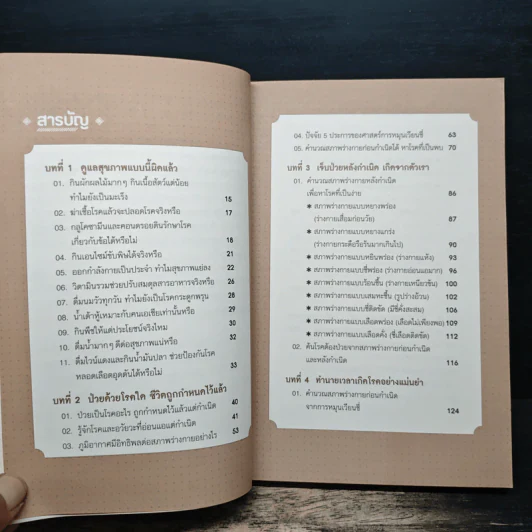 สารบัญ
บทที่ 1 ดูแลสุขภาพแบบนี้ผิดแล้ว
01. กินผักผลไม้มากๆ กินเนื้อสัตว์แต่น้อย
ทำไมยังเป็นมะเร็ง 15
02. ฆ่าเชื้อโรคแล้วจะปลอดโรคจริงหรือ 17
03. กลูโคซามีนและคอนดรอยตินรักษาโรค
เกี่ยวกับข้อได้หรือไม่ 18
04. กินเอนไซม์ขับพิษได้จริงหรือ 21
05. ออกกำลังกายเป็นประจำ ทำไมสุขภาพแย่ลง 22
06. วิตามินรวมช่วยปรับสมดุลสารอาหารจริงหรือ 26
07. ดื่มนมวัวทุกวัน ทำไมยังเป็นโรคกระดูกพรุน 27
08. น้ำเต้าหู้เหมาะกับคนเอเชียเท่านั้นหรือ 28
09. กินพืชให้แต่ประโยชน์จริงไหม 29
10. ดื่มน้ำมากๆ ดีต่อสุขภาพแน่หรือ 32
11. ดื่มไวน์แดงและกินน้ำมันปลา ช่วยป้องกันโรค
หลอดเลือดอุดตันได้หรือไม่ 33
บทที่ 2 ป่วยด้วยโรคใด ชีวิตถูกกำหนดไว้แล้ว
01. ป่วยเป็นโรคอะไร ถูกกำหนดไว้แล้วแต่กำเนิด 40
02. รู้จักโรคและอวัยวะที่อ่อนแอแต่กำเนิด 41
03. ภูมิอากาศมีอิทธิพลต่อสภาพร่างกายอย่างไร 53
04. ปัจจัย 5 ประการของศาสตร์การหมุนเวียนชี่ 63
05. คำนวณสภาพร่างกายก่อนกำเนิดได้ หาโรคที่เป็นพบ 70
บทที่ 3 เจ็บป่วยหลังกำเนิด เกิดจากตัวเรา
01. คำนวณสภาพร่างกายหลังกำเนิด
เพื่อหาโรคที่เป็นง่าย 86
✱ สภาพร่างกายแบบหยางพร่อง
(ร่างกายเสื่อมก่อนวัย) 87
✱ สภาพร่างกายแบบหยางแกร่ง
(ร่างกายกระตือรือร้นมากเกินไป) 90
✱ สภาพร่างกายแบบหยินพร่อง (ร่างกายแห้ง) 93
✱ สภาพร่างกายแบบชี่พร่อง (ร่างกายอ่อนแอมาก) 96
✱ สภาพร่างกายแบบร้อนชื้น (ร่างกายเหนียวข้น) 100
✱ สภาพร่างกายแบบเสมหะชื้น (รูปร่างอ้วน) 103
✱ สภาพร่างกายแบบชี่ติดขัด (มีชี่คั่งสะสม) 106
✱ สภาพร่างกายแบบเลือดพร่อง (เลือดไม่เพียงพอ) 109
✱ สภาพร่างกายแบบเลือดคั่ง (ชี่เลือดติดขัด) 112
02. ค้นโรคต้องป่วยจากสภาพร่างกายก่อนกำเนิด
และหลังกำเนิด 116
บทที่ 4 ทำนายเวลาเกิดโรคอย่างแม่นยำ
01. คำนวณสภาพร่างกายก่อนกำเนิด
จากการหมุนเวียนชี่ 124